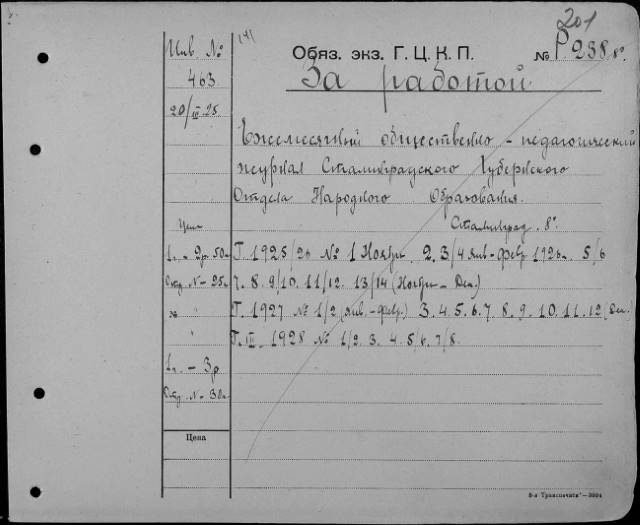 201
Инв. №
141
Обяз. экз. Г. Ц. К. П.
№ Р 238 8°.
463
За работой.
20/III.25
Ежемесячный общественно-педагогический
журнал Сталинградского Губернского
Отдела Народного Образования.
Цена
Сталинград. 8°.
1 г. - 2р. 50к.
Г. 1925/26 № 1 Ноябрь. 2. 3/4 янв-февр 1926г. 5/6
Отд. № - 25к
7. 8. 9/10. 11/12. 13/14 (Ноябрь - Дек.)
Г. 1927 № 1/2 (янв.-февр.) 3. 4. 5. 6. 7. 8. 9. 10. 11. 12 (Дек.
Г. III. 1928 № 1/2. 3. 4. 5/6. 7/8.
1 г. - 3р
Отд. № - 30к
Цена